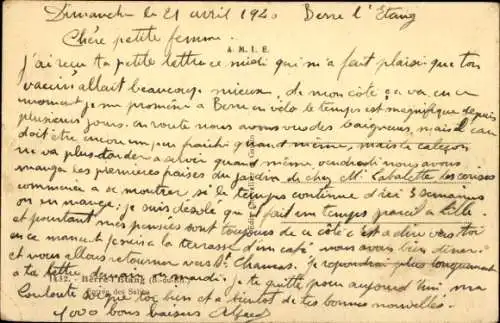 Dimanche le 21 avril 1940 Berre l'Etang
Chère petite femme.
A. M. I. E.
j'ai reçu ta petite lettre ce midi qui m'a fait plaisir que ton
vaccin allait beaucoup mieux. de mon côté ça va, en ce
moment je me promène à Berre en vélo le temps est magnifique depuis
plusieurs jours. en route nous avons vu des baigneurs, mais l'eau
doit être encore un peu fraîche quand même, mais le caleçon
ne va plus tarder à voir quand même vendredi nous avons
mangé les premières fraises du jardin de chez Mr Cabalette les cerises
commence à se montrer si le temps continue d'ici 3 semaines
on en mange; je suis désolé qu'il fait un temps pareil à Lille
et pourtant mes pensées sont toujours de ce côté c'est à dire vers toi
en ce moment je suis à la terrasse d'un café nous avons bien diner
et nous allons retourner vers St Chamas. Je repondrai plus longuement
à ta lettre demain ou mardi, je te quitte pour aujourd'hui ma
132. - Berre-l'Etang (B.-du-Rh.)
Louloute soigne toi bien et à bientôt de tes bonnes nouvelles.
des Salins
1000 bons baisers Alfred